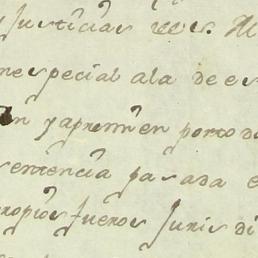 justicias
especial ala de es
y apremien por todo
sentencia pasada e
propios fueros Juris di